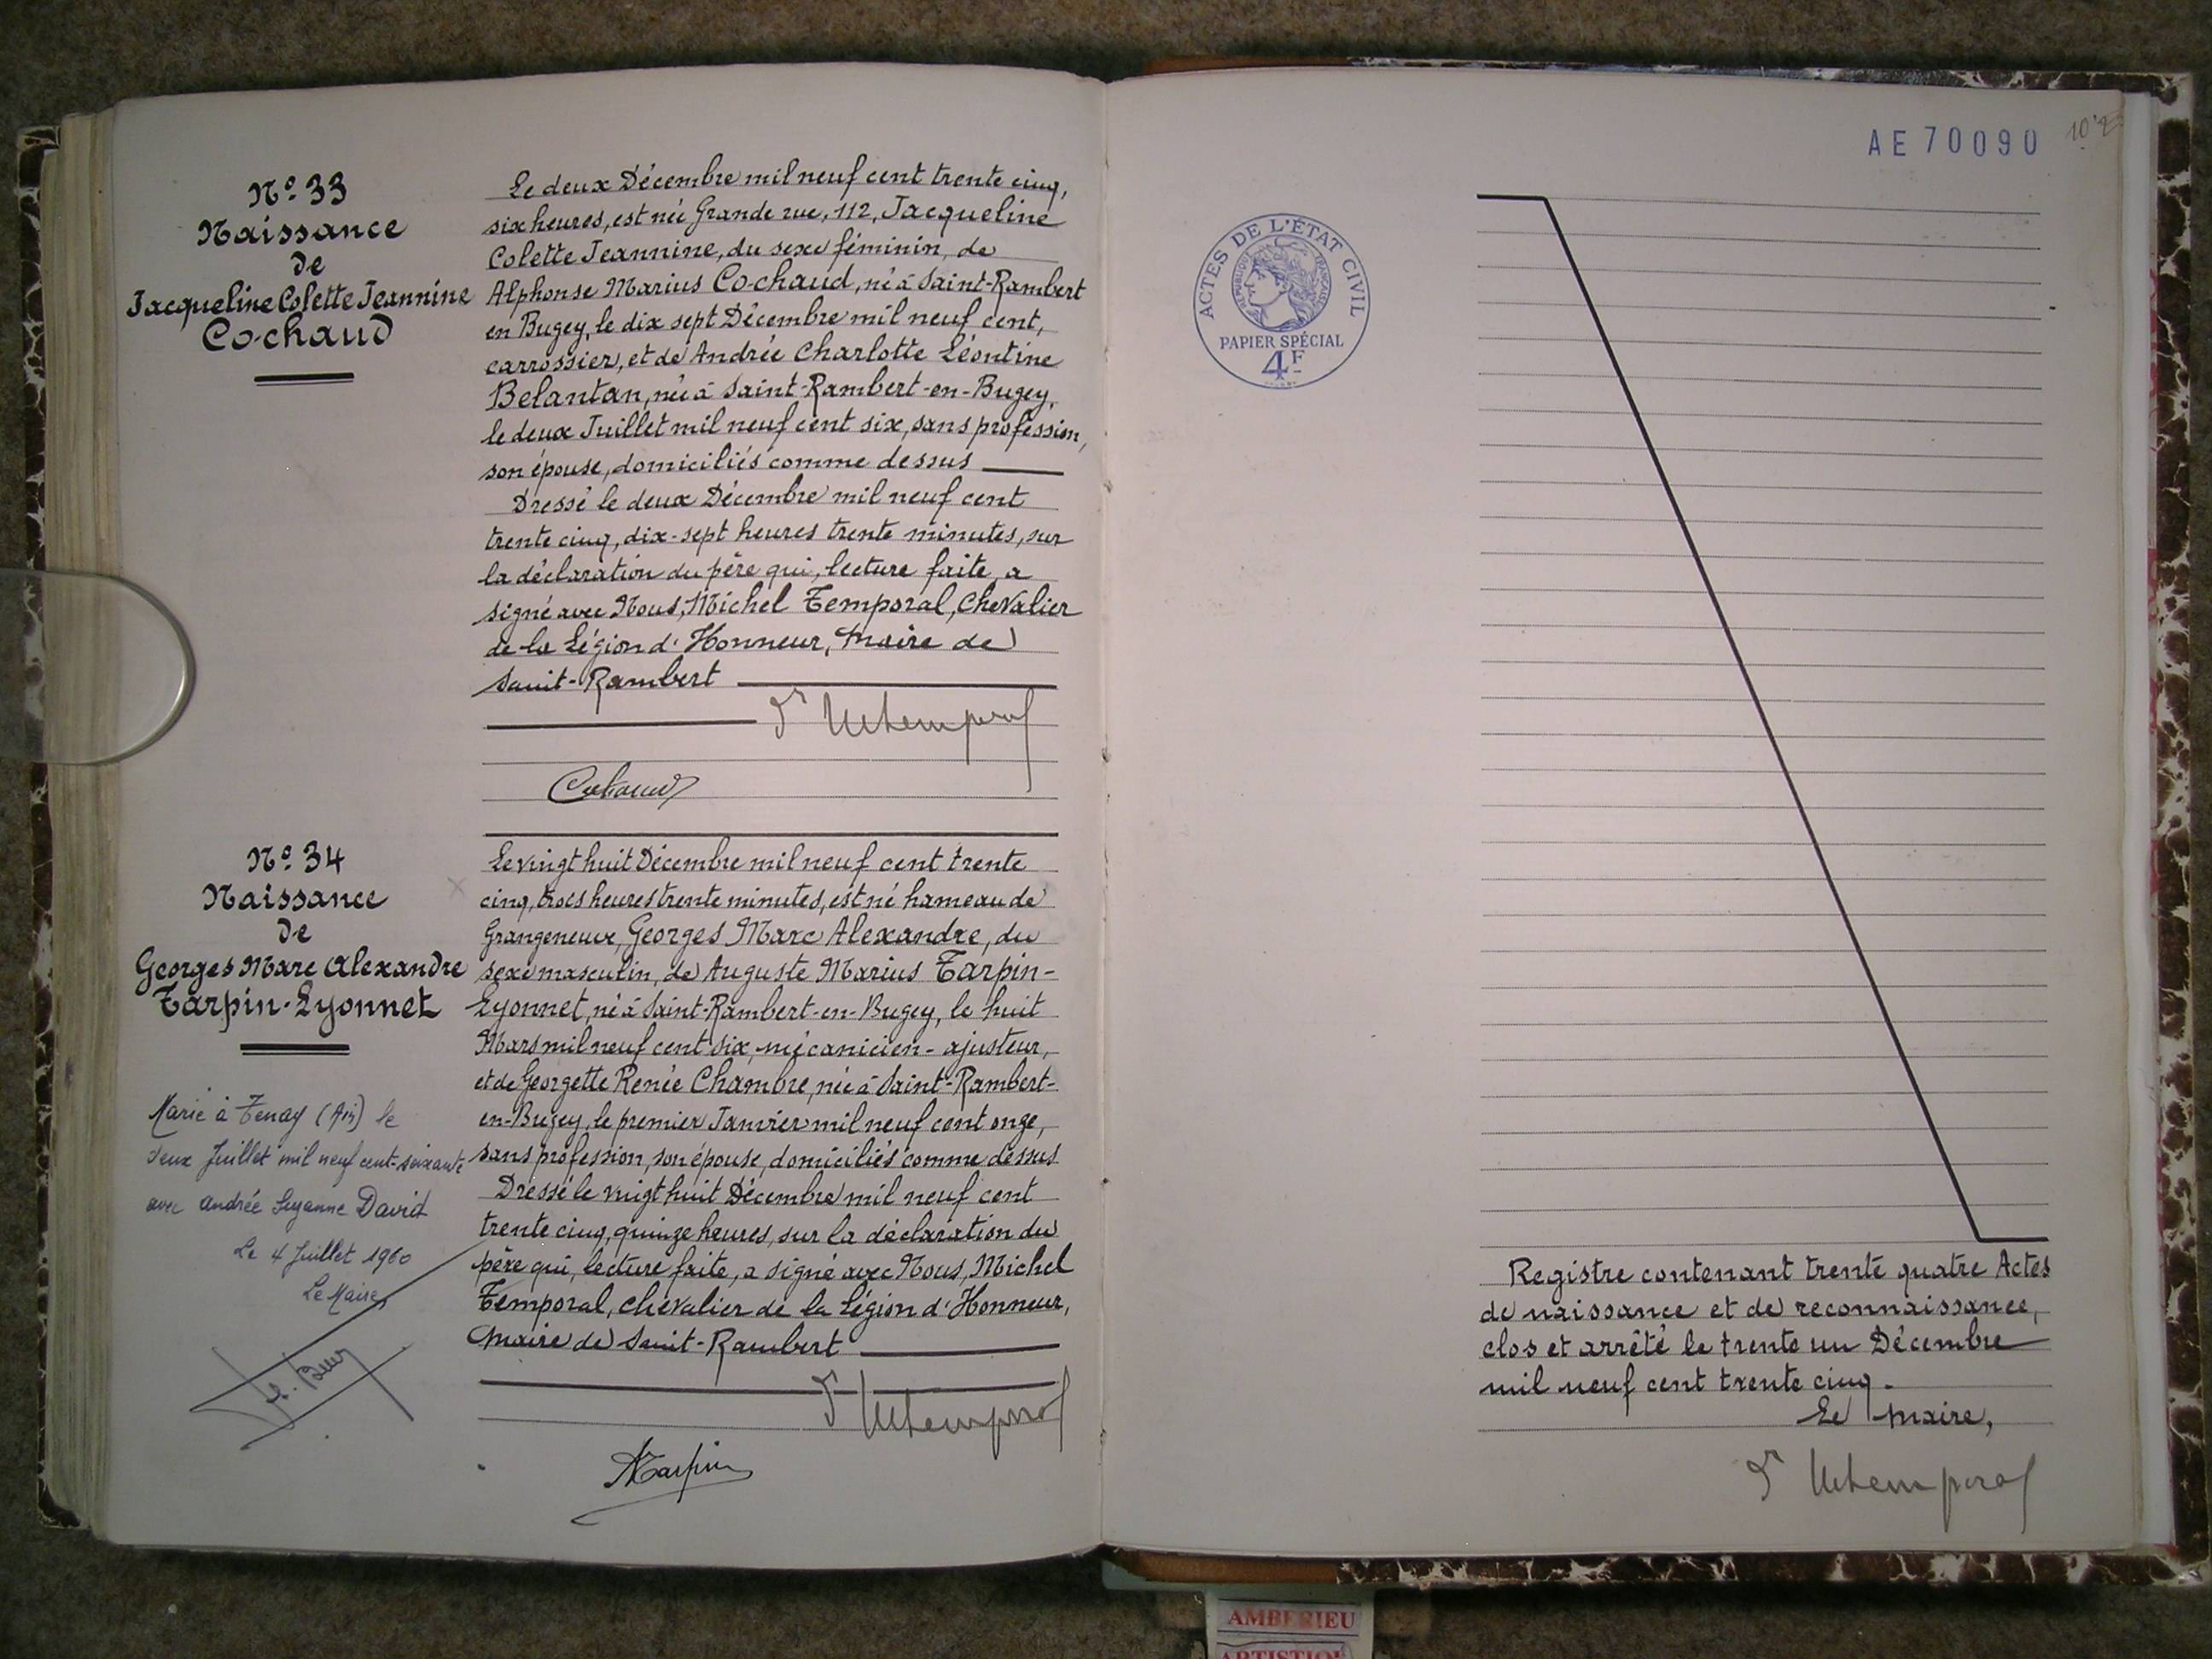 N° 33
Naissance
de
Jacqueline Colette Jeannine
Co-chaud
Le deux Décembre mil neuf cent trente cinq,
six heures, est née Grande rue, 112, Jacqueline
Colette Jeannine, du sexe féminin, de
Alphonse Marius Co-chaud, né à Saint-Rambert
en Bugey, le dix sept Décembre mil neuf cent,
carrossier, et de Andrée Charlotte Léontine
Belantan, née à Saint-Rambert-en-Bugey,
le deux Juillet mil neuf cent six, sans profession,
son épouse, domiciliés comme dessus
Dressé le deux Décembre mil neuf cent
trente cinq, dix-sept heures trente minutes, sur
la déclaration du père qui, lecture faite, a
signé avec Nous, Michel Temporal, Chevalier
de la Légion d'Honneur, Maire de
Saint-Rambert
Dr Mtemporal
Cochaud
N° 34
Naissance
de
Georges Marc Alexandre
Tarpin-Lyonnet
Marié à Tenay (Ain) le
deux Juillet mil neuf cent-soixante
avec Andrée Suzanne David
Le 4 Juillet 1960
Le Maire
Le vingt huit Décembre mil neuf cent trente
cinq, trois heures trente minutes, est né hameau de
Grangeneuve, Georges Marc Alexandre, du
sexe masculin, de Auguste Marius Tarpin-
Lyonnet, né à Saint-Rambert-en-Bugey, le huit
Mars mil neuf cent six, mécanicien-ajusteur,
et de Georgette Renée Chambre, née à Saint-Rambert-
en-Bugey, le premier Janvier mil neuf cent onze,
sans profession, son épouse, domiciliés comme dessus
Dressé le vingt huit Décembre mil neuf cent
trente cinq, quinze heures, sur la déclaration du
père qui, lecture faite, a signé avec Nous, Michel
Temporal, chevalier de la Légion d'Honneur,
Maire de Saint-Rambert
Dr Mtemporal
ATarpin
AE 70090
ACTES DE L'ÉTAT CIVIL
RÉPUBLIQUE FRANÇAISE
PAPIER SPÉCIAL
4F
Registre contenant trente quatre Actes
de naissance et de reconnaissance,
clos et arrêté le trente un Décembre
mil neuf cent trente cinq.
Le Maire,
Dr Mtemporal
AMBERIEU